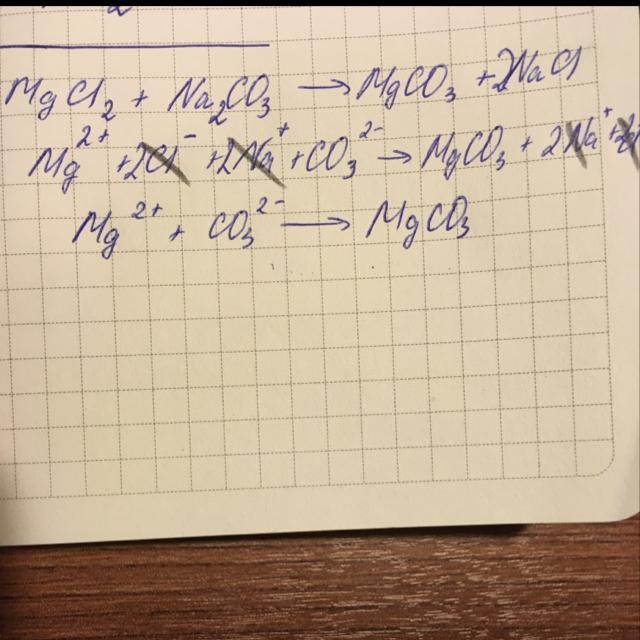 MgCl₂ + Na₂CO₃ → MgCO₃ + 2NaCl
Mg²⁺ + 2Cl⁻ + 2Na⁺ + CO₃²⁻ → MgCO₃ + 2Na⁺ +
Mg²⁺ + CO₃²⁻ → MgCO₃